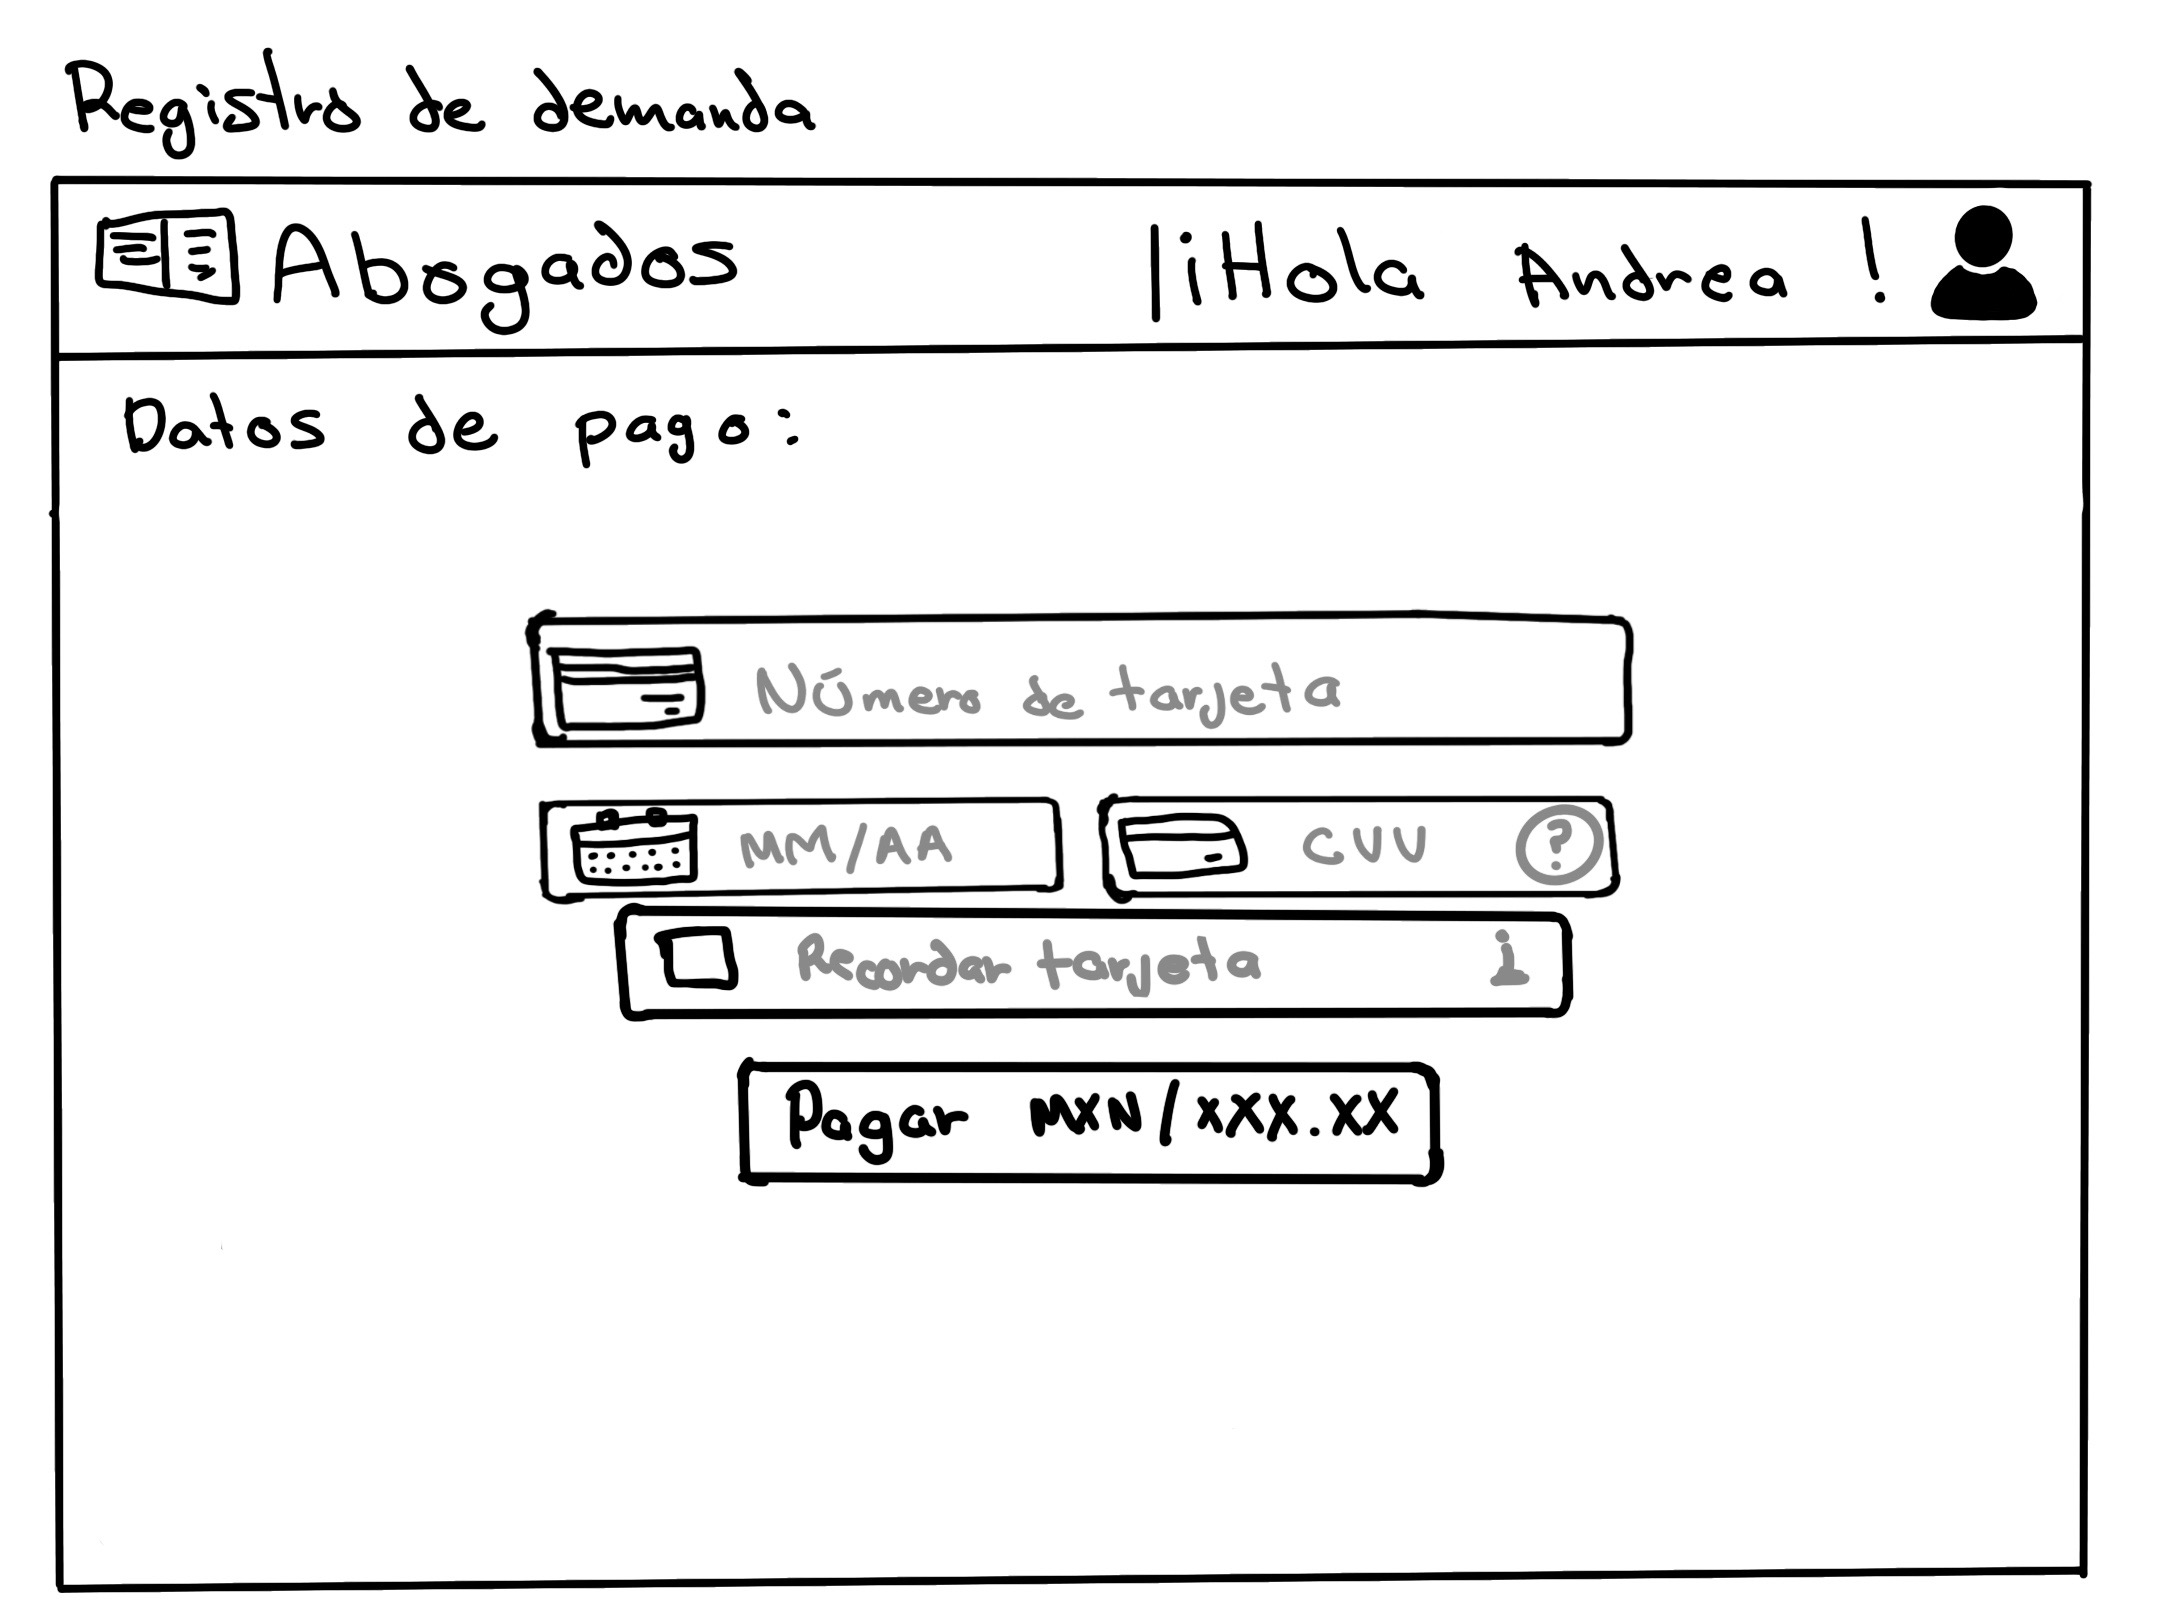 Registro de demanda
Abogados |¡Hola Andrea !
Datos de pago:
Número de tarjeta
MM/AA CVV ?
Recordar tarjeta i
Pagar MXN/XXX.XX